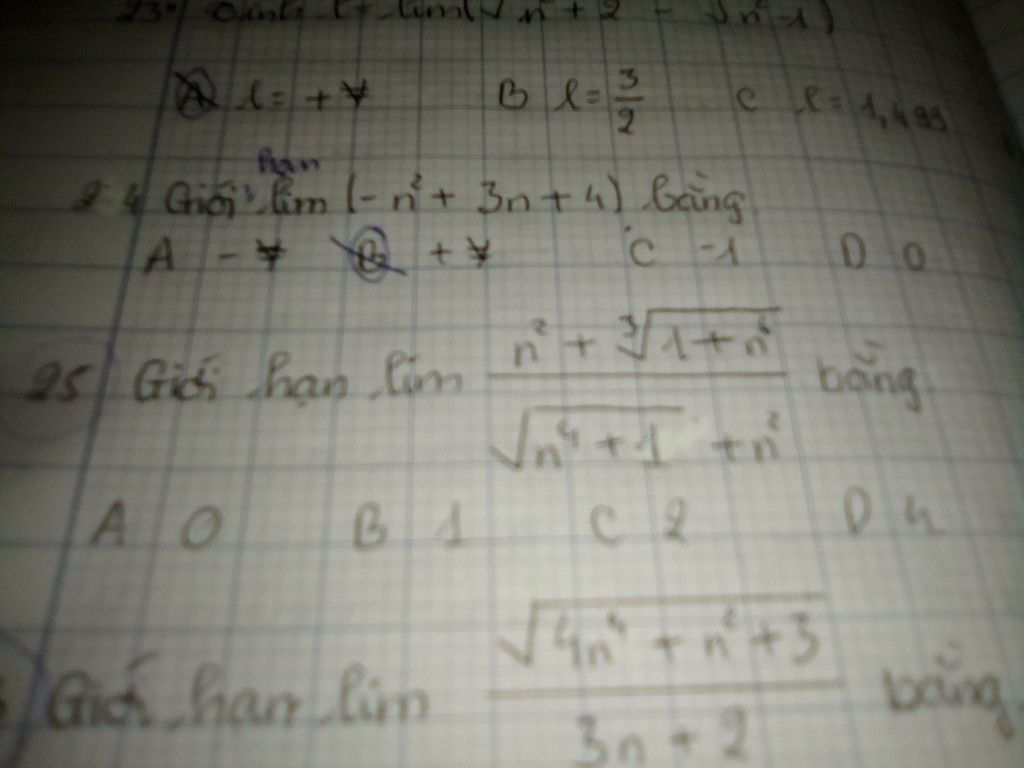 lim(√n² + 2 - √n² - 1)
A l = + ∀ B l = 3/2 C l = 1,499
hạn
24 Giới lim (-n² + 3n + 4) bằng
A - ∀ B + ∀ C -1 D 0
25 Giới hạn lim (n² + ∛(1 + n⁶)) / (√(n⁴ + 1) + n²) bằng
A 0 B 1 C 2 D 4
Giới hạn lim √(4n⁴ + n² + 3) / (3n + 2) bằng